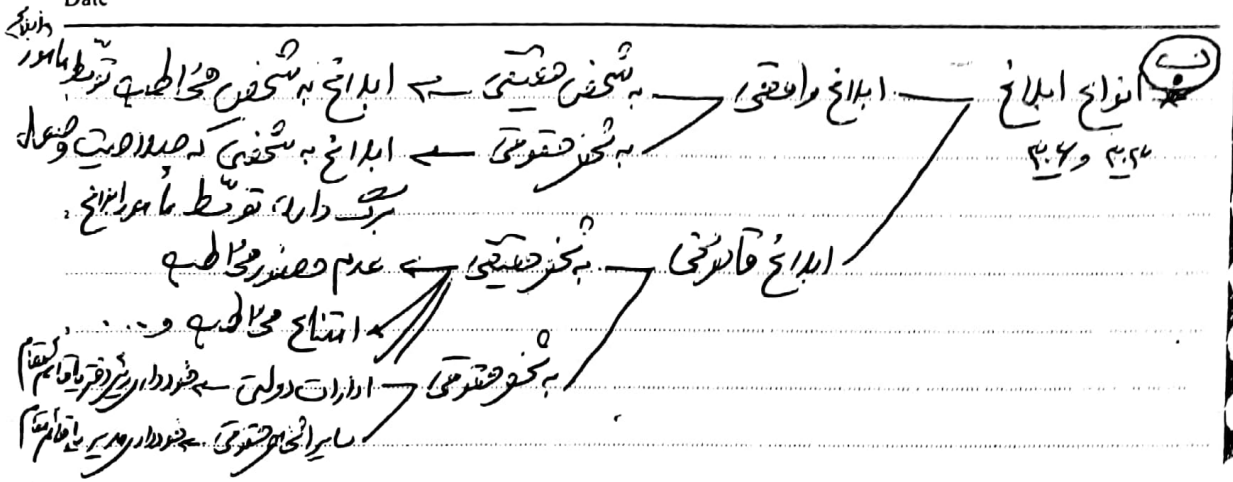 Date
ن
انواع ابلاغ — ابلاغ واقعی — به شخص حقیقی ← ابلاغ به شخص مخاطب توسط مامور ابلاغ
به شخص حقوقی ← ابلاغ به شخصی که صلاحیت وصول
برگ دارد، توسط مأمور ابلاغ
2
ابلاغ قانونی — به شخص حقیقی ← عدم حضور مخاطب
3
امتناع مخاطب و ....
به شخص حقوقی — ادارات دولتی ← خودداری رئیس دفتر یا قائم مقام
سایر اشخاص حقوقی ← خودداری مدیر یا قائم مقام